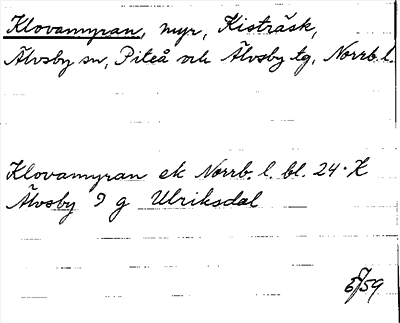 Klovamyran, myr, Kisträsk,
Älvsby sn, Piteå och Älvsby tg, Norrb. l.
Klovamyran ek Norrb. l. bl. 24 · K
Älvsby 9 g Ulriksdal